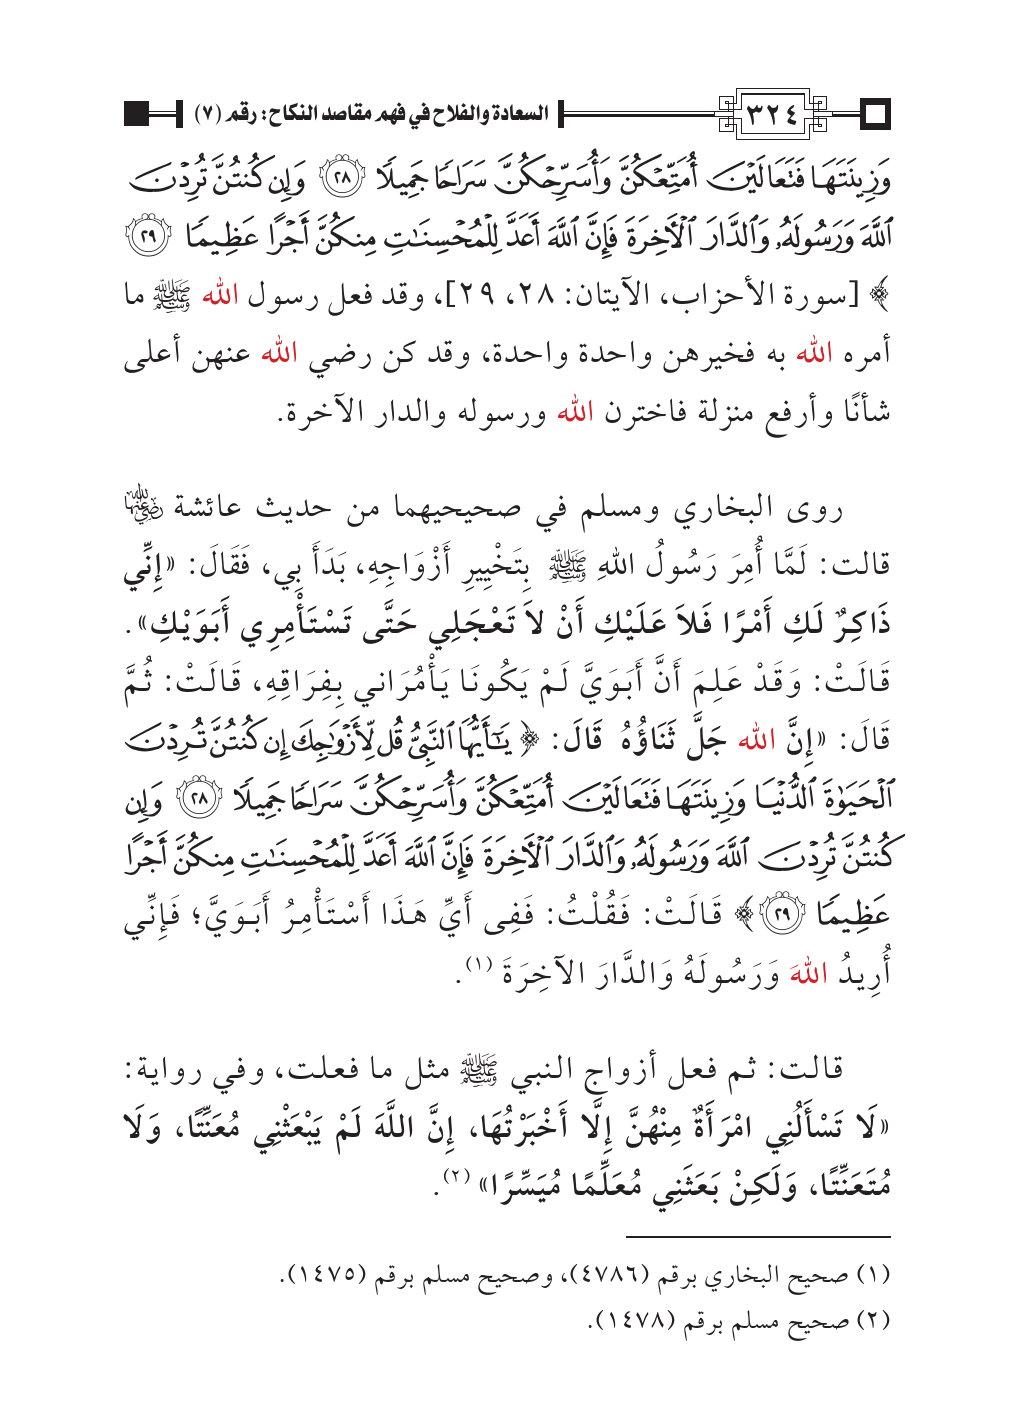 ٣٢٤ السعادة والفلاح في فهم مقاصد النكاح: رقم (٧)
وَزِينَتَهَا فَتَعَالَيْنَ أُمَتِّعْكُنَّ وَأُسَرِّحْكُنَّ سَرَاحًا جَمِيلًا ٢٨ وَإِن كُنتُنَّ تُرِدْنَ
ٱللَّهَ وَرَسُولَهُۥ وَٱلدَّارَ ٱلْأَخِرَةَ فَإِنَّ ٱللَّهَ أَعَدَّ لِلْمُحْسِنَـٰتِ مِنكُنَّ أَجْرًا عَظِيمًا ٢٩
﴾ [سورة الأحزاب، الآيتان: ٢٨، ٢٩]، وقد فعل رسول الله ﷺ ما
أمره الله به فخيرهن واحدة واحدة، وقد كن رضي الله عنهن أعلى
شأنًا وأرفع منزلة فاخترن الله ورسوله والدار الآخرة.
روى البخاري ومسلم في صحيحيهما من حديث عائشة رضي الله عنها
قالت: لَمَّا أُمِرَ رَسُولُ اللهِ ﷺ بِتَخْيِيرِ أَزْوَاجِهِ، بَدَأَ بِي، فَقَالَ: «إِنِّي
ذَاكِرٌ لَكِ أَمْرًا فَلاَ عَلَيْكِ أَنْ لاَ تَعْجَلِي حَتَّى تَسْتَأْمِرِي أَبَوَيْكِ».
قَالَتْ: وَقَدْ عَلِمَ أَنَّ أَبَوَيَّ لَمْ يَكُونَا يَأْمُرَانِي بِفِرَاقِهِ، قَالَتْ: ثُمَّ
قَالَ: «إِنَّ الله جَلَّ ثَنَاؤُهُ قَالَ: ﴿ يَـٰٓأَيُّهَا ٱلنَّبِىُّ قُل لِّأَزْوَٰجِكَ إِن كُنتُنَّ تُرِدْنَ
ٱلْحَيَوٰةَ ٱلدُّنْيَا وَزِينَتَهَا فَتَعَالَيْنَ أُمَتِّعْكُنَّ وَأُسَرِّحْكُنَّ سَرَاحًا جَمِيلًا ٢٨ وَإِن
كُنتُنَّ تُرِدْنَ ٱللَّهَ وَرَسُولَهُۥ وَٱلدَّارَ ٱلْأَخِرَةَ فَإِنَّ ٱللَّهَ أَعَدَّ لِلْمُحْسِنَـٰتِ مِنكُنَّ أَجْرًا
عَظِيمًا ٢٩ ﴾ قَالَتْ: فَقُلْتُ: فَفِى أَيِّ هَذَا أَسْتَأْمِرُ أَبَوَيَّ؛ فَإِنِّي
أُرِيدُ اللهَ وَرَسُولَهُ وَالدَّارَ الآخِرَةَ (١).
قالت: ثم فعل أزواج النبي ﷺ مثل ما فعلت، وفي رواية:
«لَا تَسْأَلُنِي امْرَأَةٌ مِنْهُنَّ إِلَّا أَخْبَرْتُهَا، إِنَّ اللَّهَ لَمْ يَبْعَثْنِي مُعَنِّتًا، وَلَا
مُتَعَنِّتًا، وَلَكِنْ بَعَثَنِي مُعَلِّمًا مُيَسِّرًا» (٢).
(١) صحيح البخاري برقم (٤٧٨٦)، وصحيح مسلم برقم (١٤٧٥).
(٢) صحيح مسلم برقم (١٤٧٨).